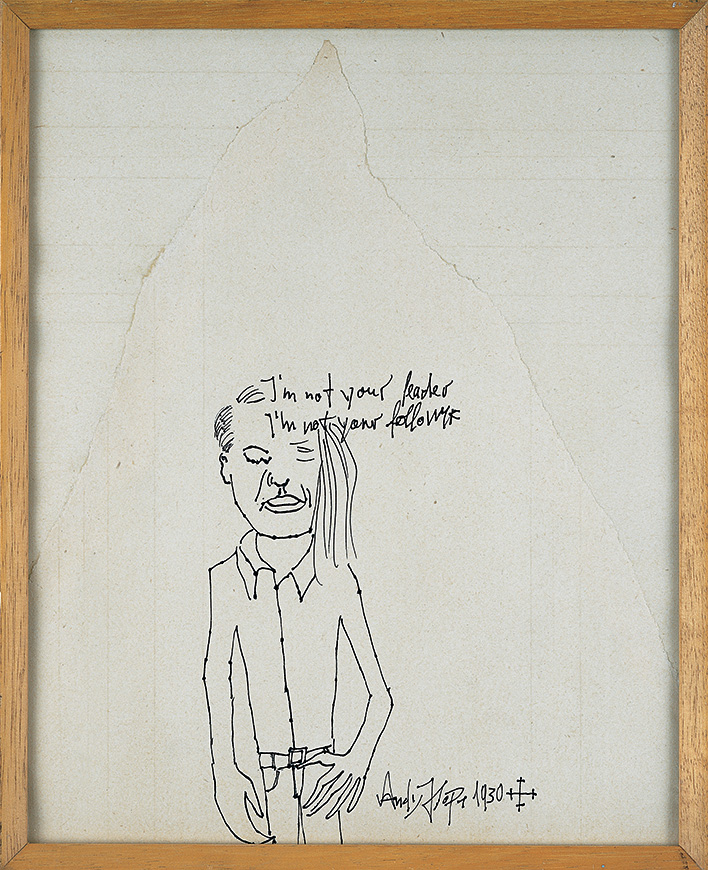 I'm not your leader
I'm not your follower
Andi Hope 1930